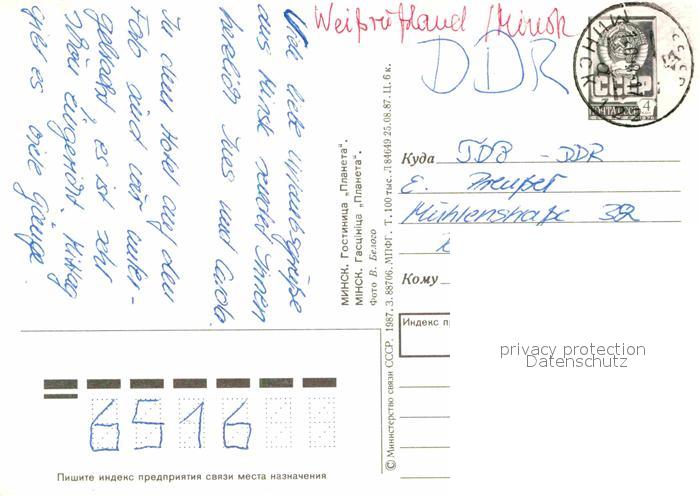 Weißrußland / Minsk
DDR
Viele liebe Urlaubsgrüße
aus Minsk sendet Ihnen
herzlich Ines und
In dem Hotel auf dem
Foto sind wir unter-
gebracht, es ist sehr
schön eingerichtet. Mittag
gibt es viele Gänge
МИНСК. Гостиница „Планета".
МІНСК. Гасцініца „Планета".
Фото В. Белого
© Министерство связи СССР. 1987. З. 88706. МПФГ. Т. 100 тыс. Л 84649 25.08.87. II. 6 к.
МИНСК
СССР
ПОЧТА СССР
4
Куда DDR
E.
Mühlenstraße 32
Кому
Индекс п
privacy protection
Datenschutz
6516
Пишите индекс предприятия связи места назначения